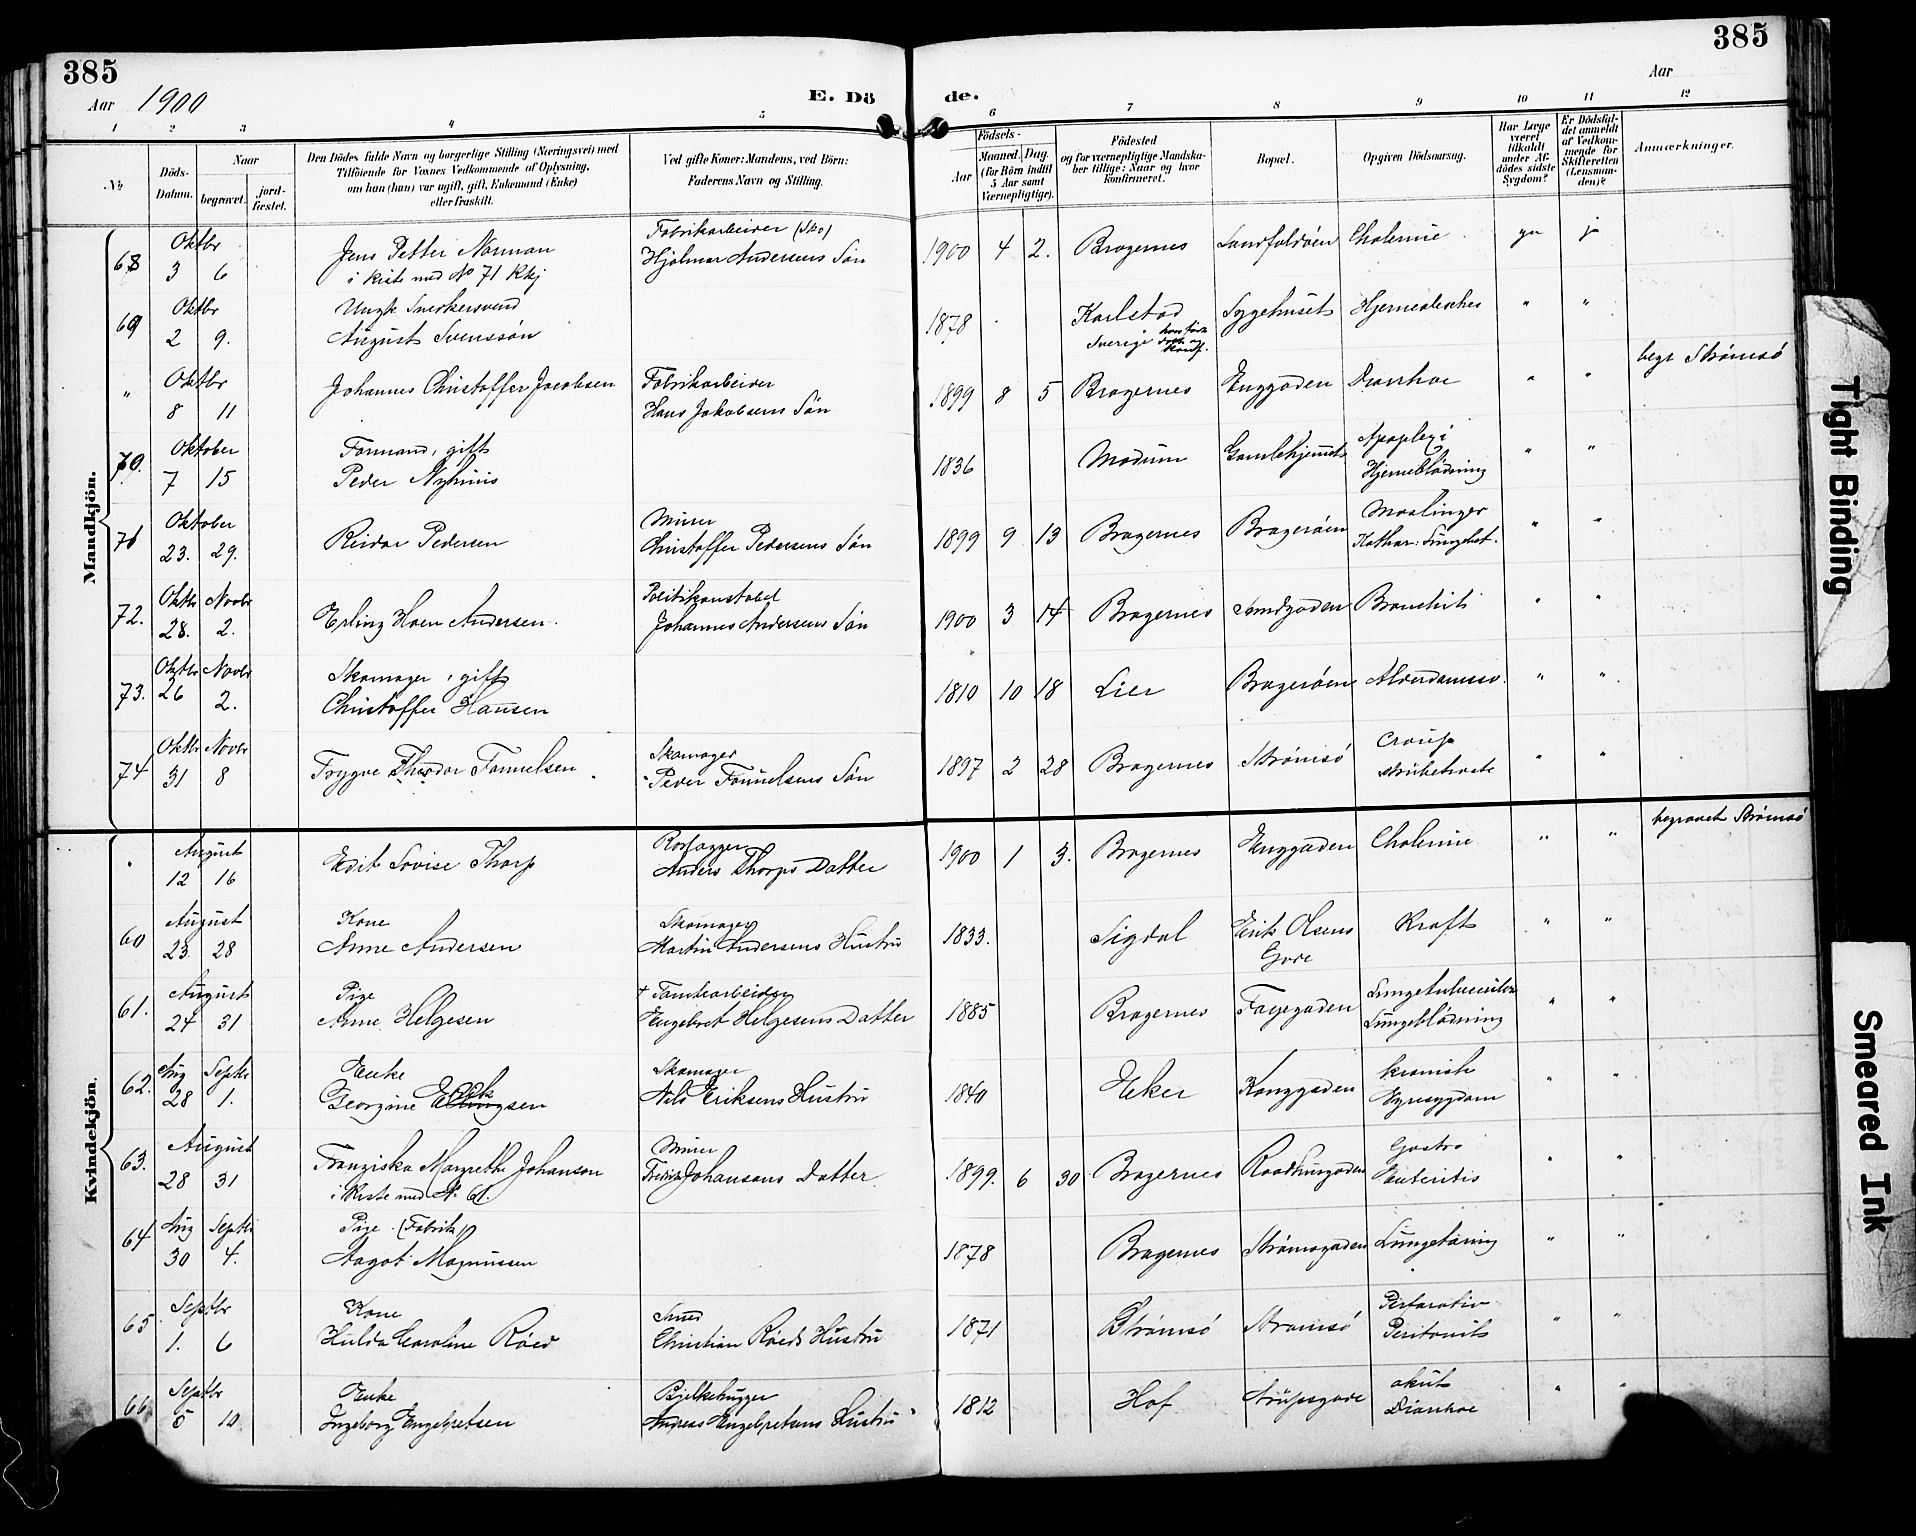 385
385
Aar 1900
E. Dö de.
Aar
1 2 3 4 5 6 7 8 9 10 11 12
No
Döds-Datum.
Naar
begravet.
jord-fæstet.
Den Dödes fulde Navn og borgerlige Stilling (Næringsvei) med
Tilföiende for Voxnes Vedkommende af Oplysning,
om han (hun) var ugift, gift, Enkemand (Enke)
eller fraskilt.
Ved gifte Koner: Mandens, ved Börn:
Faderens Navn og Stilling.
Födsels-
Aar
Maaned. Dag.
(for Börn indtil
5 Aar samt
Værnepligtige).
Födested
og for værnepligtige Mandska-
ber tillige: Naar og hvor
konfirmeret.
Bopæl.
Opgiven Dödsaarsag.
Har Læge
været
tilkaldt
under Af-
dödes sidste
Sygdom?
Er Dödsfal-
det anmeldt
af Vedkom-
mende for
Skifteretten
(Lensman-
den)?
Anmærkninger.
Mandkjön.
68 Oktbr 3 6 Jens Petter Norman Fabrikarbeider (Sko) Hjalmar Andersens Sön 1900 4 2. Bragernes Landfaldöen Cholerine ja ja
i kiste med No 71 Kkj
69 Oktbr 2 9. Ungk Snedkersvend August Svenssön 1878 Karlstad Sverige Sygehuset " "
" Oktbr 8 11 Johannes Christoffer Jacobsen Fabrikarbeider Hans Jakobsens Sön 1899 8 5 Bragernes Enggaden Diarrhoe " " begr Strömsö
70. Oktober 7 15 Formand, gift Peder Nyhuus 1836 Modum Gamlehjemmet Apoplexi Hjerneblödning " "
71 Oktober 23. 29. Reidar Pedersen Murer Christoffer Pedersens Sön 1899 9 13 Bragernes Brageröen Mæslinger Kathar: Lungebet. " "
72. Oktbr 28. Novbr 2. Erling Hoen Andersen Politikonstabel Johannes Andersens Sön 1900 3 14 Bragernes Landgaden Bronchit " "
73. Oktbr 26 Novbr 2. Skomager, gift Christoffer Hansen 1810 10 18 Lier Brageröen Alderdomssv. " "
74 Oktbr 31 Novbr 8 Trygve Theodor Tonnelsen Skomager Peder Tonnelsens Sön 1897 2 28 Bragernes Strömsö Croup Strubehoste " "
Kvindekjön.
" August 12 16 Edit Lovise Thorp Anders Thorps Datter 1900 1 3. Bragernes Enggaden Cholerine " " begravet Strömsö
60 August 23 28 Kone Anne Andersen Skomager Martin Andersens Hustru 1833. Sigdal Erik Olsens Gade Kræft " "
61. August 24 31 Pige Anne Helgesen + Tomtearbeider Engebret Helgesens Datter 1885 Bragernes Fagegaden Lungetuberculose Lungeblödning " "
62. Aug 28 Septbr 1. Enke Georgine Skomager Nils Eriksens Hustru 1840 Eker Konggaden kronisk Nyresygdom " "
63. August 28 31 Franziska Margrethe Johanson Murer Johansons Datter 1899. 6 30 Bragernes Raadhusgaden Gastro Enteritis " "
i kiste med No 61.
64 Aug 30 Septbr 4. Pige (Fabrik) Aagot Magnussen 1878 Bragernes Strömsgaden Lungetæring " "
65 Septbr 1. 6 Kone Hulda Caroline Röed Smed Christian Röeds Hustru 1871 Strömsö Strömsö Perforativ Peritonit " "
66 Septbr 5 10 Enke Ingeborg Engebretsen Bjelkehugger Andreas Engebretsens Hustru 1812 Hof akut Diarrhoe " "
Tight Binding
Smeared Ink